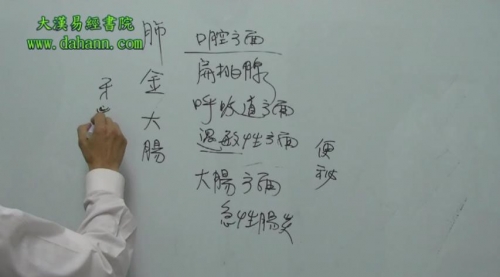 大漢易經書院
www.dahann.com
肺金大腸
口腔方面
扁挑腺
呼吸道方面
過敏性方面
大腸方面
急性腸炎
便秘
牙